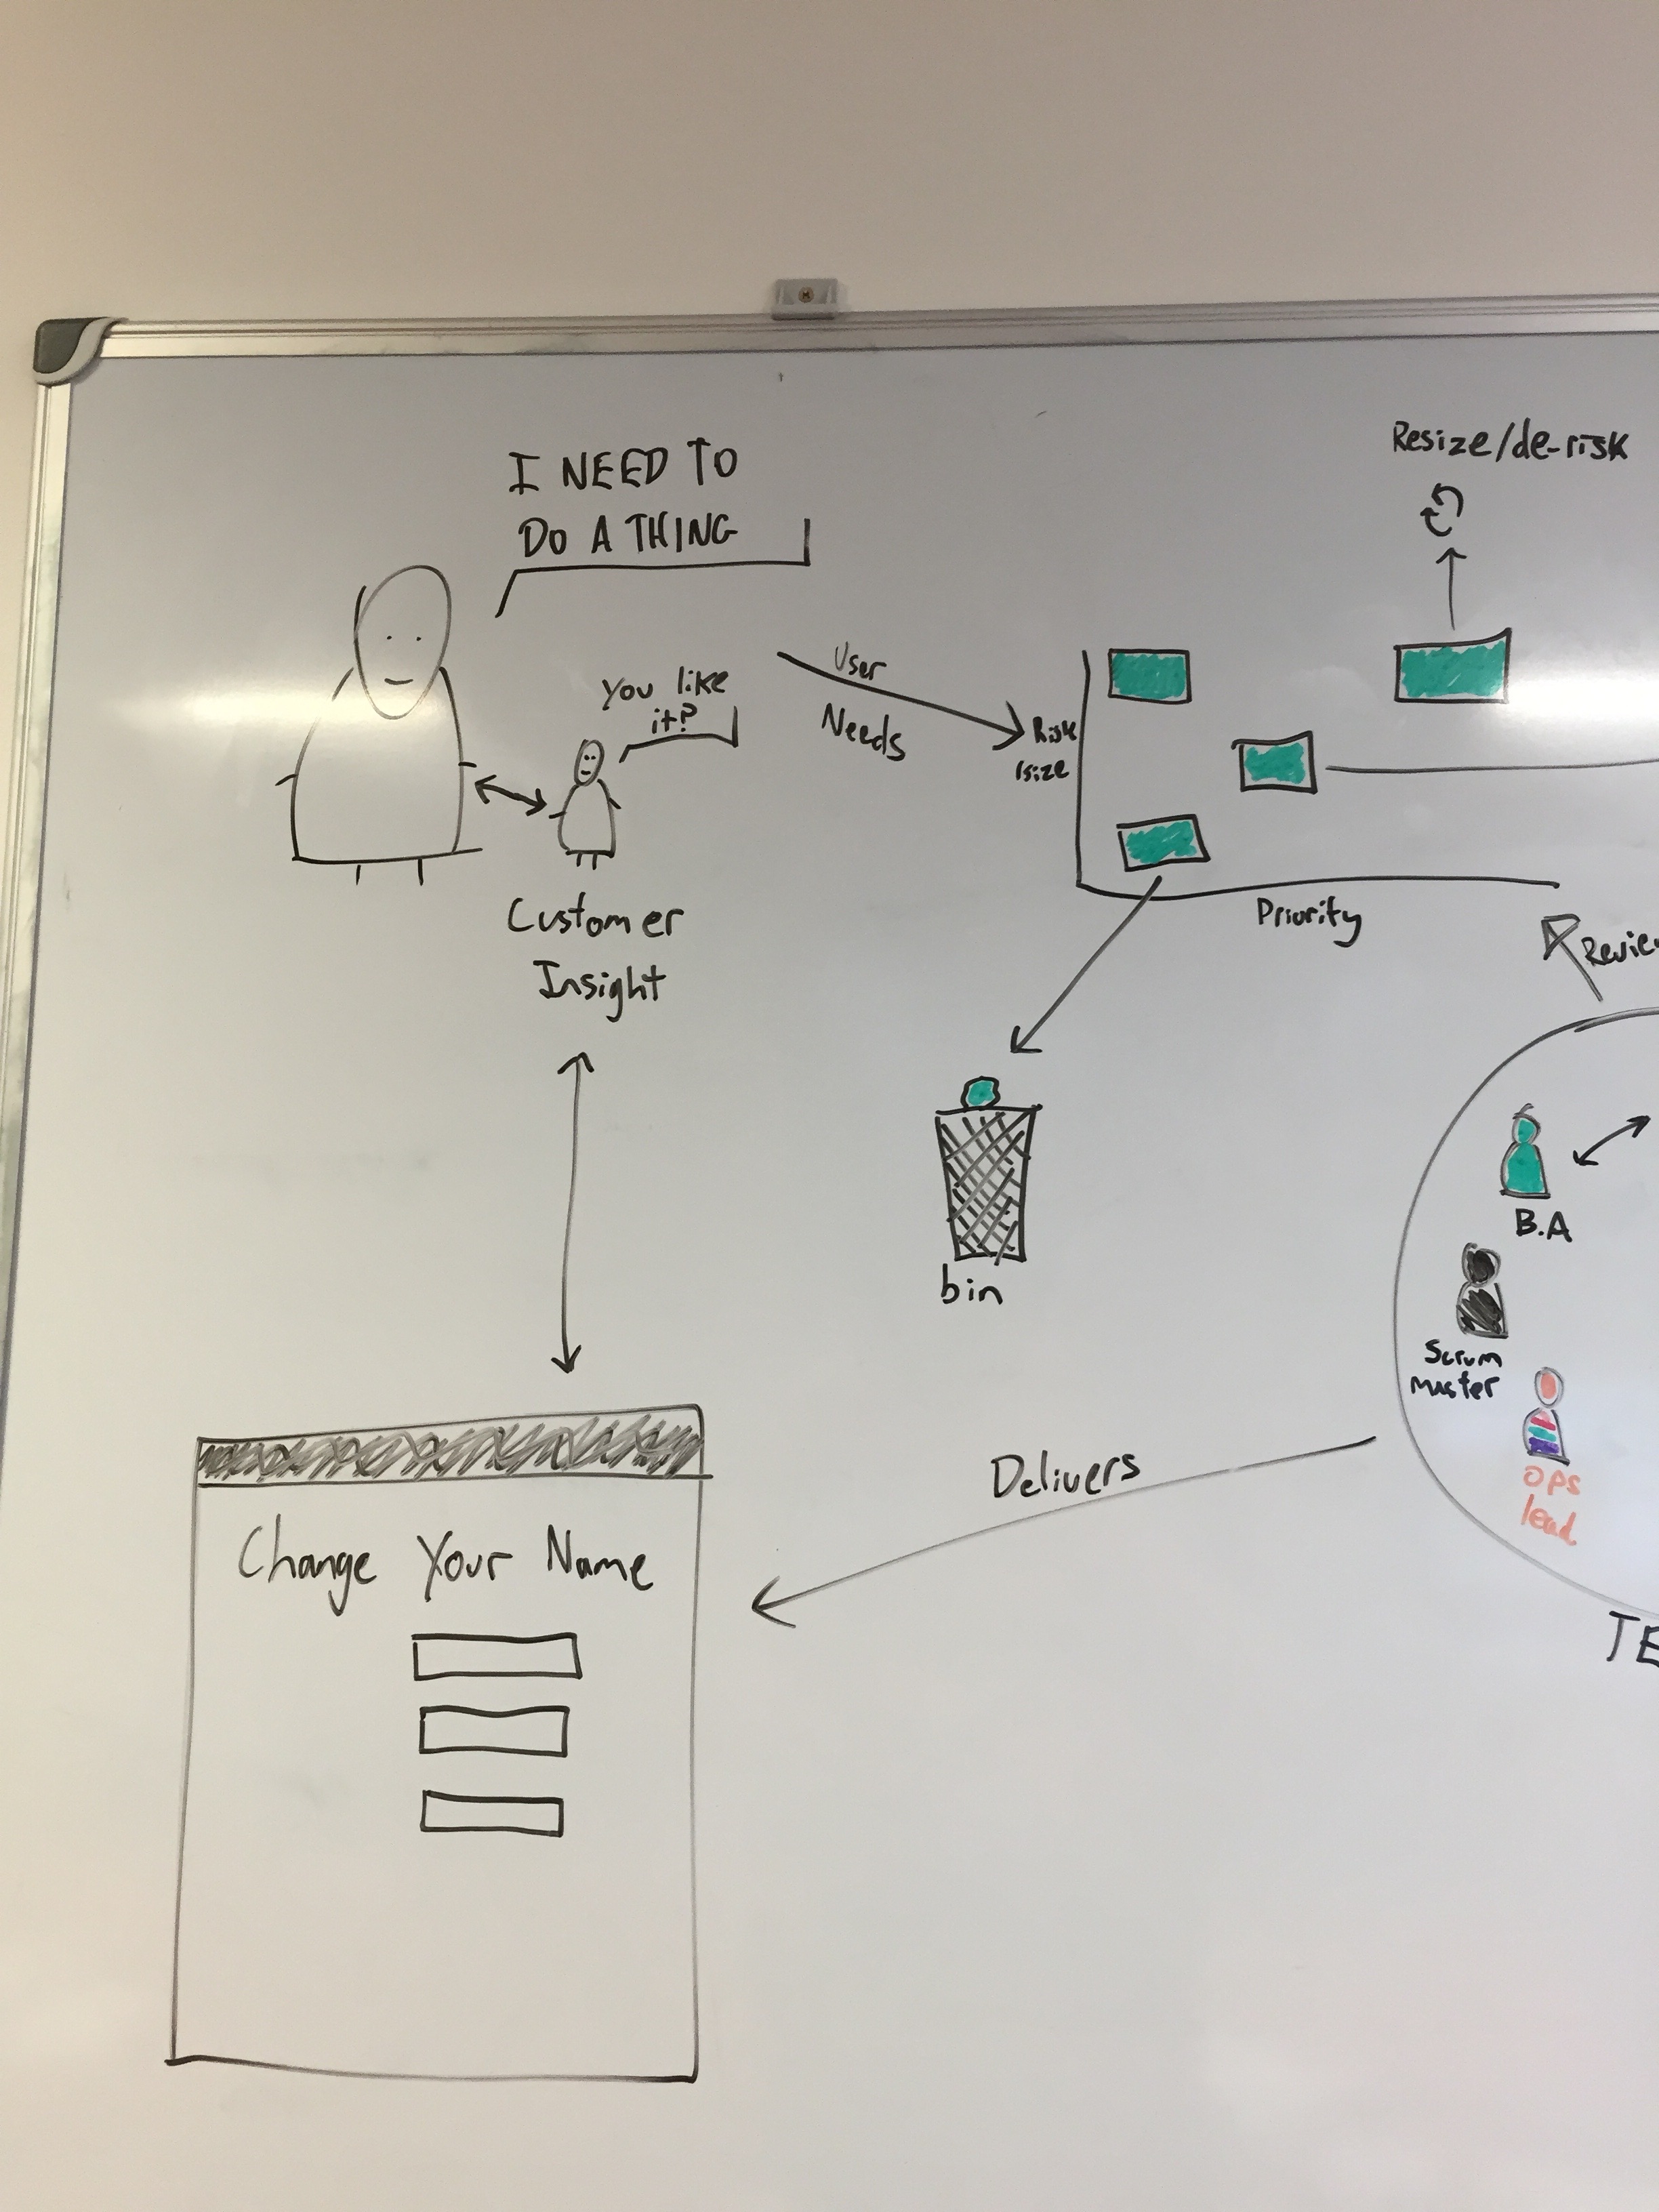 I NEED TO
DO A THING
You like
it?
Customer
Insight
User
Needs
Risk
/size
Priority
Resize/de-risk
bin
B.A
Scrum
Master
OPS
lead
Delivers
Change Your Name